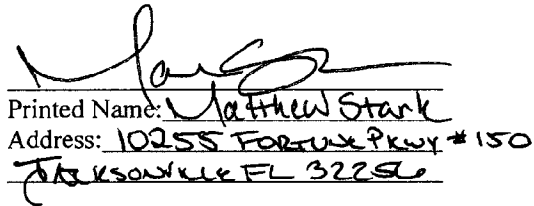 Printed Name: Matthew Stark
Address: 10255 Fortune Pkwy #150
Jacksonville FL 32256